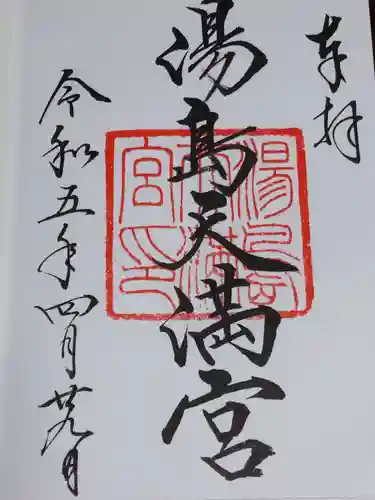 奉拝
湯島天満宮
令和五年四月廿九日
湯島天満宮印